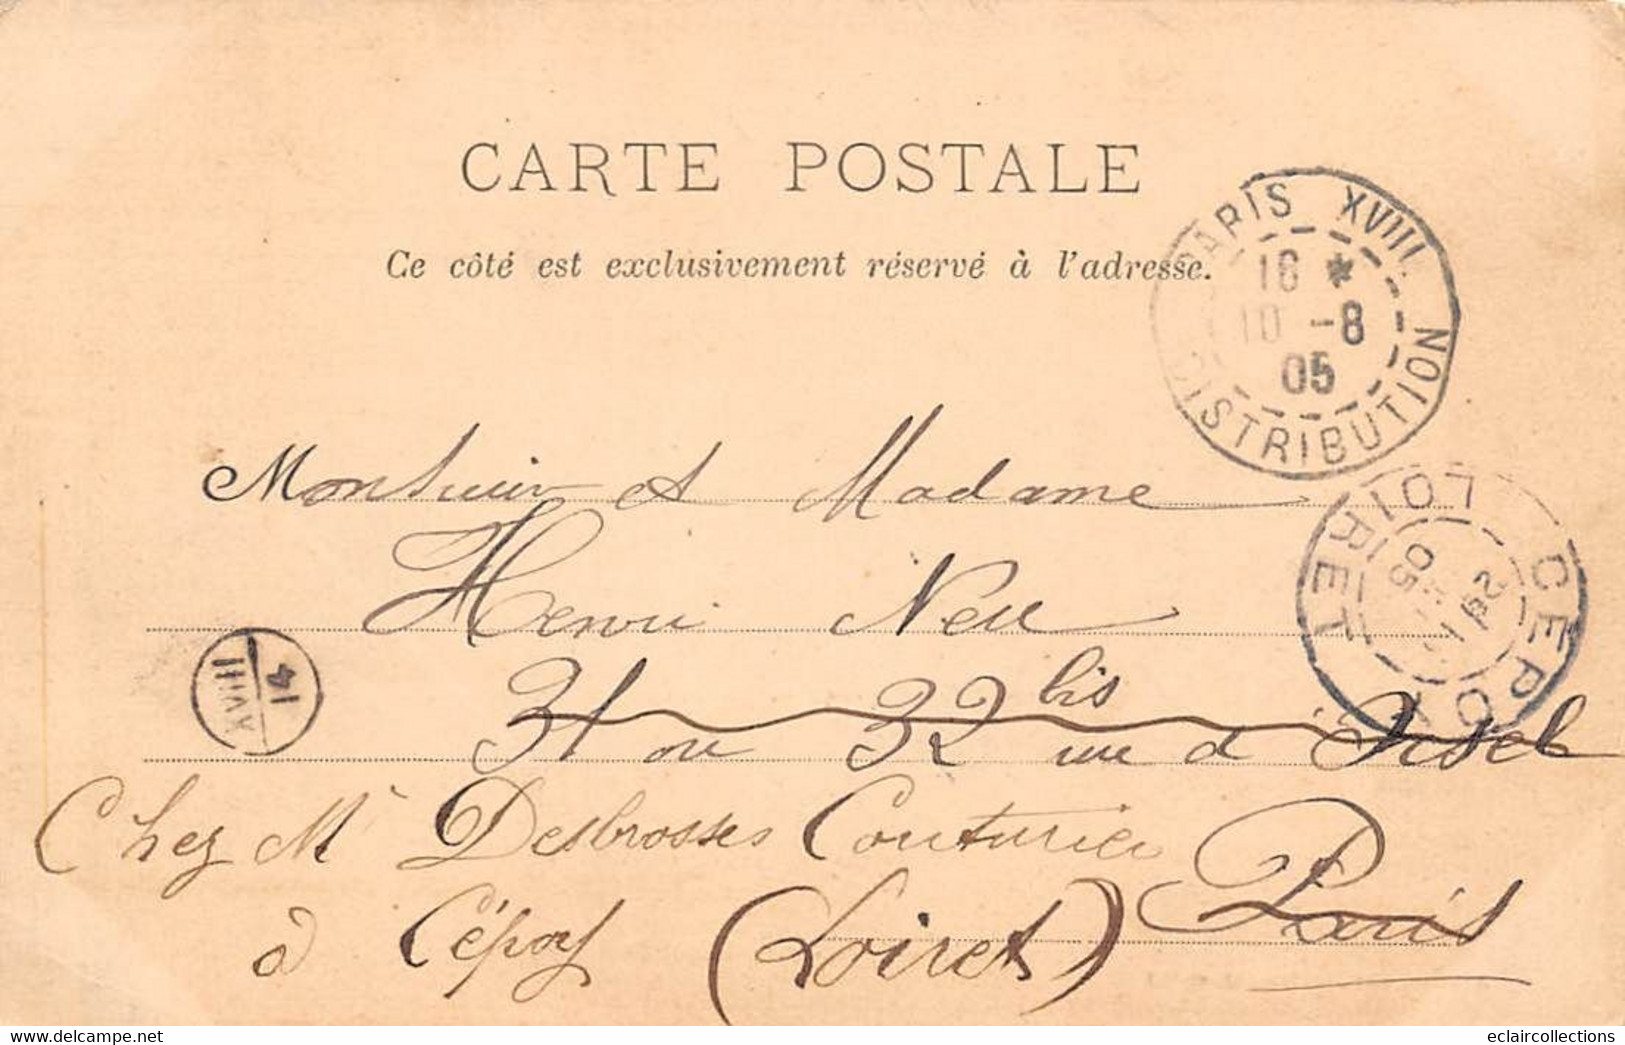 CARTE POSTALE
Ce côté est exclusivement réservé à l'adresse.
PARIS XVIII
16 *
10 -8
05
DISTRIBUTION
Monsieur et Madame
Henri Neu
31 ou 32 bis rue d'
Paris
CEPOY
LOIRET
05
14
XVIII
Chez Mr Desbrosses Couturier
à Cépoy (Loiret)
www.delcampe.net
eclaircollections